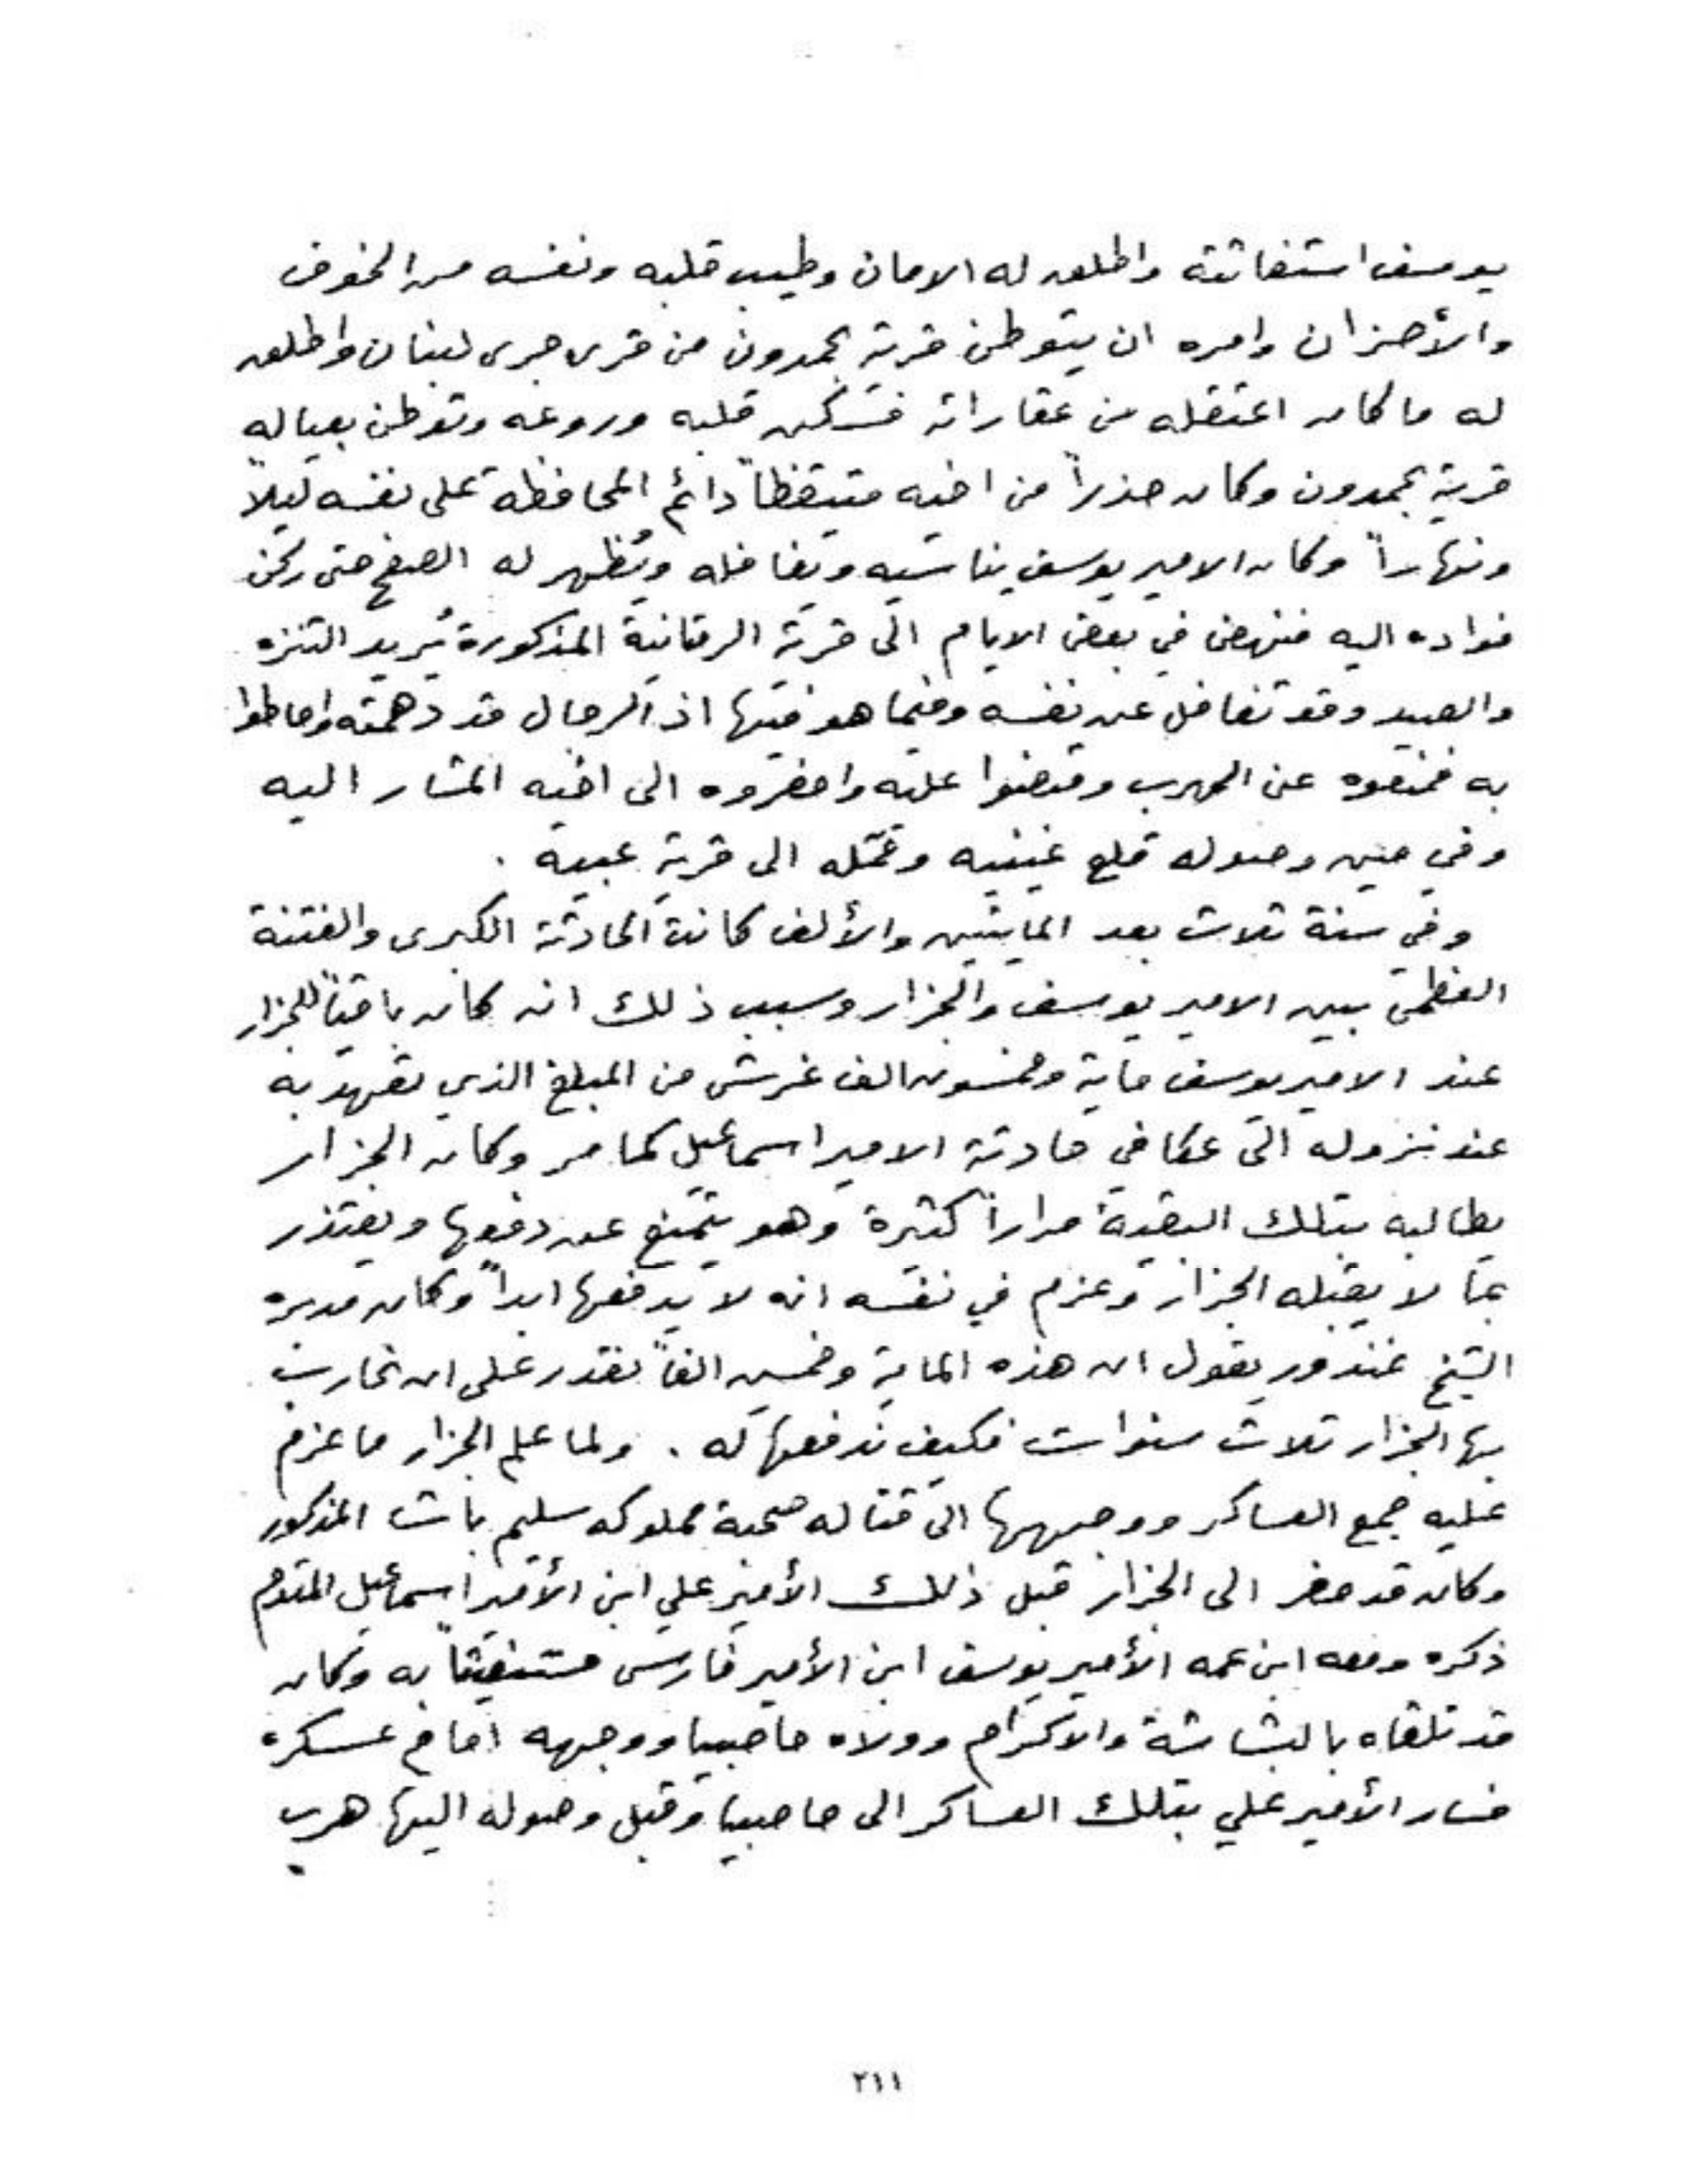 يوسف استغاثته واطلق له الامان وطيب قلبه ونفسه من الخوف
والأحزان وامره ان يتوطن قرية بحمدون من قرى جرى لبنان واطلق
له ما كان اعتقله من عقاراته فسكن قلبه وروعه وتوطن بعياله
قرية بحمدون وكان حذراً من اخيه متيقظاً دائم المحافظة على نفسه ليلاً
ونهاراً وكان الامير يوسف يناسيه ويغافله ويُظهر له الصفح حتى ركن
فواده اليه فنهض في بعض الايام الى قرية الرمانية المذكورة يُريد التنزه
والصيد وقد تغافل عن نفسه وفيما هو فيها اذ الرجال قد دهمته واحاطوا
به فمنعوه عن الهرب وقبضوا عليه واحضروه الى اخيه المشار اليه
وفي حين وصوله قلع عينيه ونقله الى قرية عبيه .
وفي سنة ثلاث بعد المايتين والألف كانت الحادثة الكبرى والفتنة
العظمى بين الامير يوسف والجزار وسبب ذلك انه كان باقياً للجزار
عند الامير يوسف ماية وخمسون الف غرش من المبلغ الذي تعهد به
عند نزوله الى عكا في حادثة الامير اسماعيل كما مر وكان الجزار
يطالبه بتلك البقية مراراً كثيرة وهو يتمنع عن دفعها ويعتذر
بما لا يقبله الجزار وعزم في نفسه انه لا يدفعها ابداً وكان مدبره
الشيخ غندور يقول ان هذه الماية وخمسين الفاً نقدر على ان نحارب
بها الجزار ثلاث سنوات فكيف ندفعها له . ولما علم الجزار ما عزم
عليه جمع العساكر ووجهها الى قتاله صحبة مملوكه سليم باشا المذكور
وكان قد حضر الى الجزار قبل ذلك الأمير علي ابن الأمير اسماعيل المتقدم
ذكره ومعه ابن عمه الأمير يوسف ابن الأمير فارس مستغيثاً به وكان
قد تلقاه بالبشاشة والاكرام وولاه حاصبيا ووجهه امام عسكره
فسار الأمير علي بتلك العساكر الى حاصبيا وقبل وصوله اليها هرب
٢١١